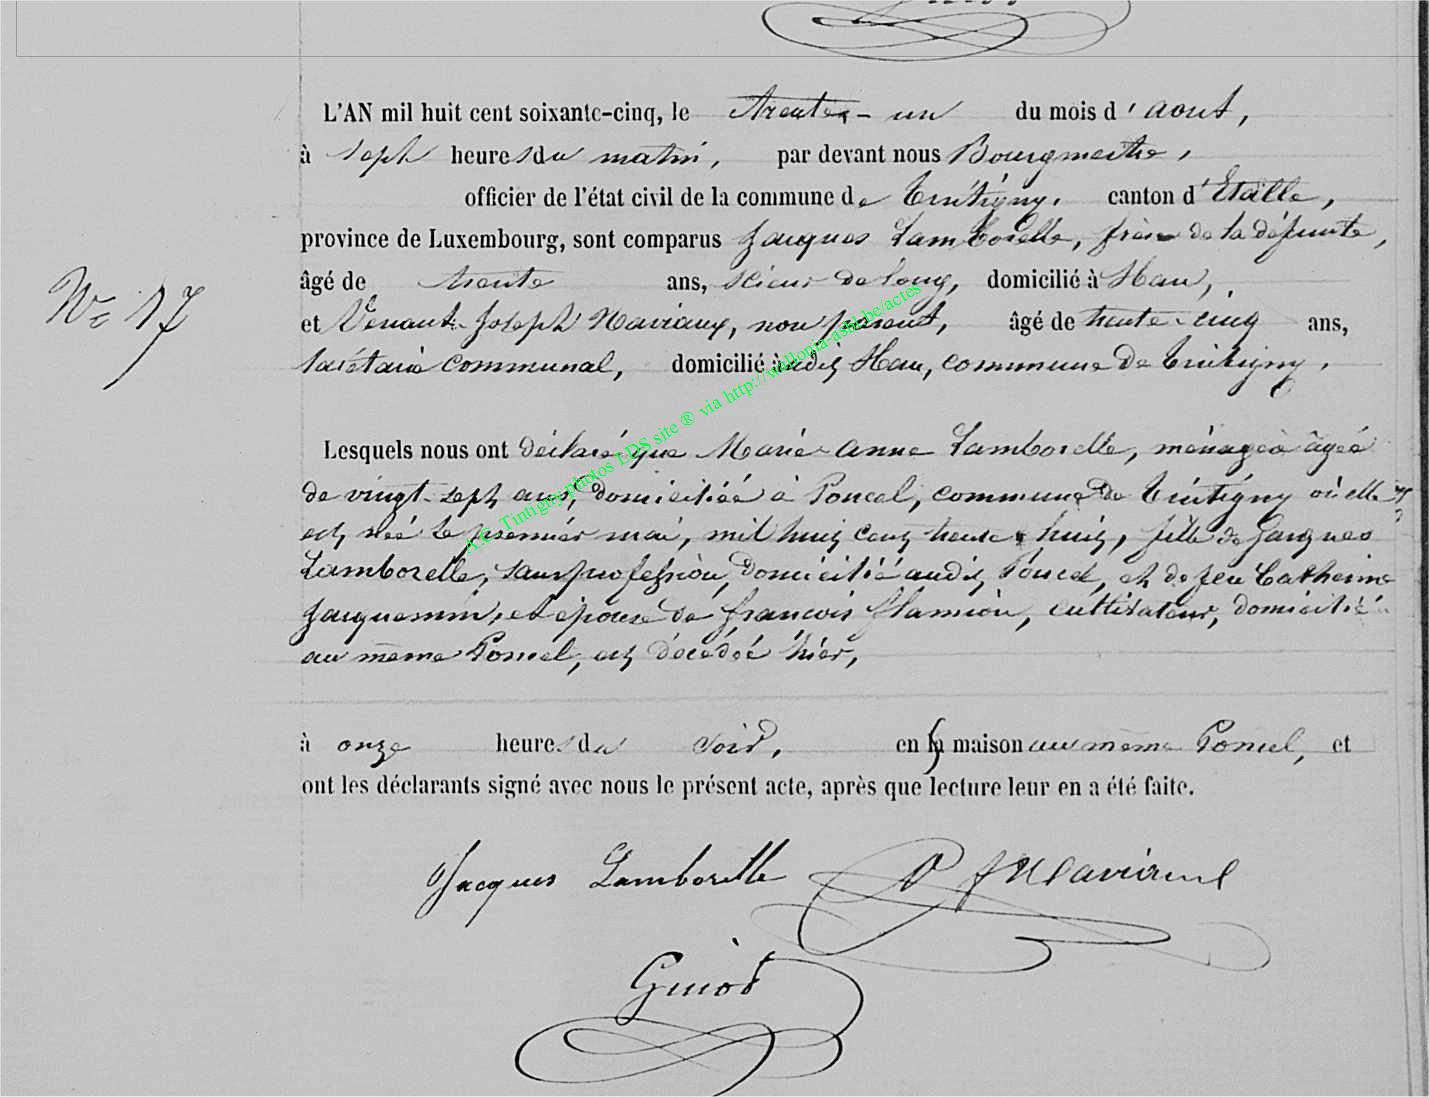 L'AN mil huit cent soixante-cinq, le trente-un du mois d'aout,
à sept heures du matin, par devant nous Bourgmestre,
officier de l'état civil de la commune de Tintigny, canton d'Etalle,
province de Luxembourg, sont comparus Jacques Lamborelle, frère de la défunte,
âgé de trente ans, scieur de long, domicilié à Han,
N° 17
et Venant-Joseph Naviaux, non parent, âgé de trente-cinq ans,
secrétaire communal, domicilié audit Han, commune de Tintigny.
Lesquels nous ont déclaré que Marie-Anne Lamborelle, ménagère âgée
de vingt-sept ans, domiciliée à Poncel, commune de Tintigny où elle
est née le premier mai, mil huit cent trente huit, fille de Jacques
Lamborelle, sans profession, domicilié audit Poncel, et de feu Catherine
Jacquemin, et épouse de François Flamion, cultivateur, domicilié
au même Poncel, est décédée hier,
à onze heures du soir, en sa maison au même Poncel, et
ont les déclarants signé avec nous le présent acte, après que lecture leur en a été faite.
Jacques Lamborelle
Guiot
A.C. Tintigny photos LDS site ® via http://wallonia-asbl.be/actes